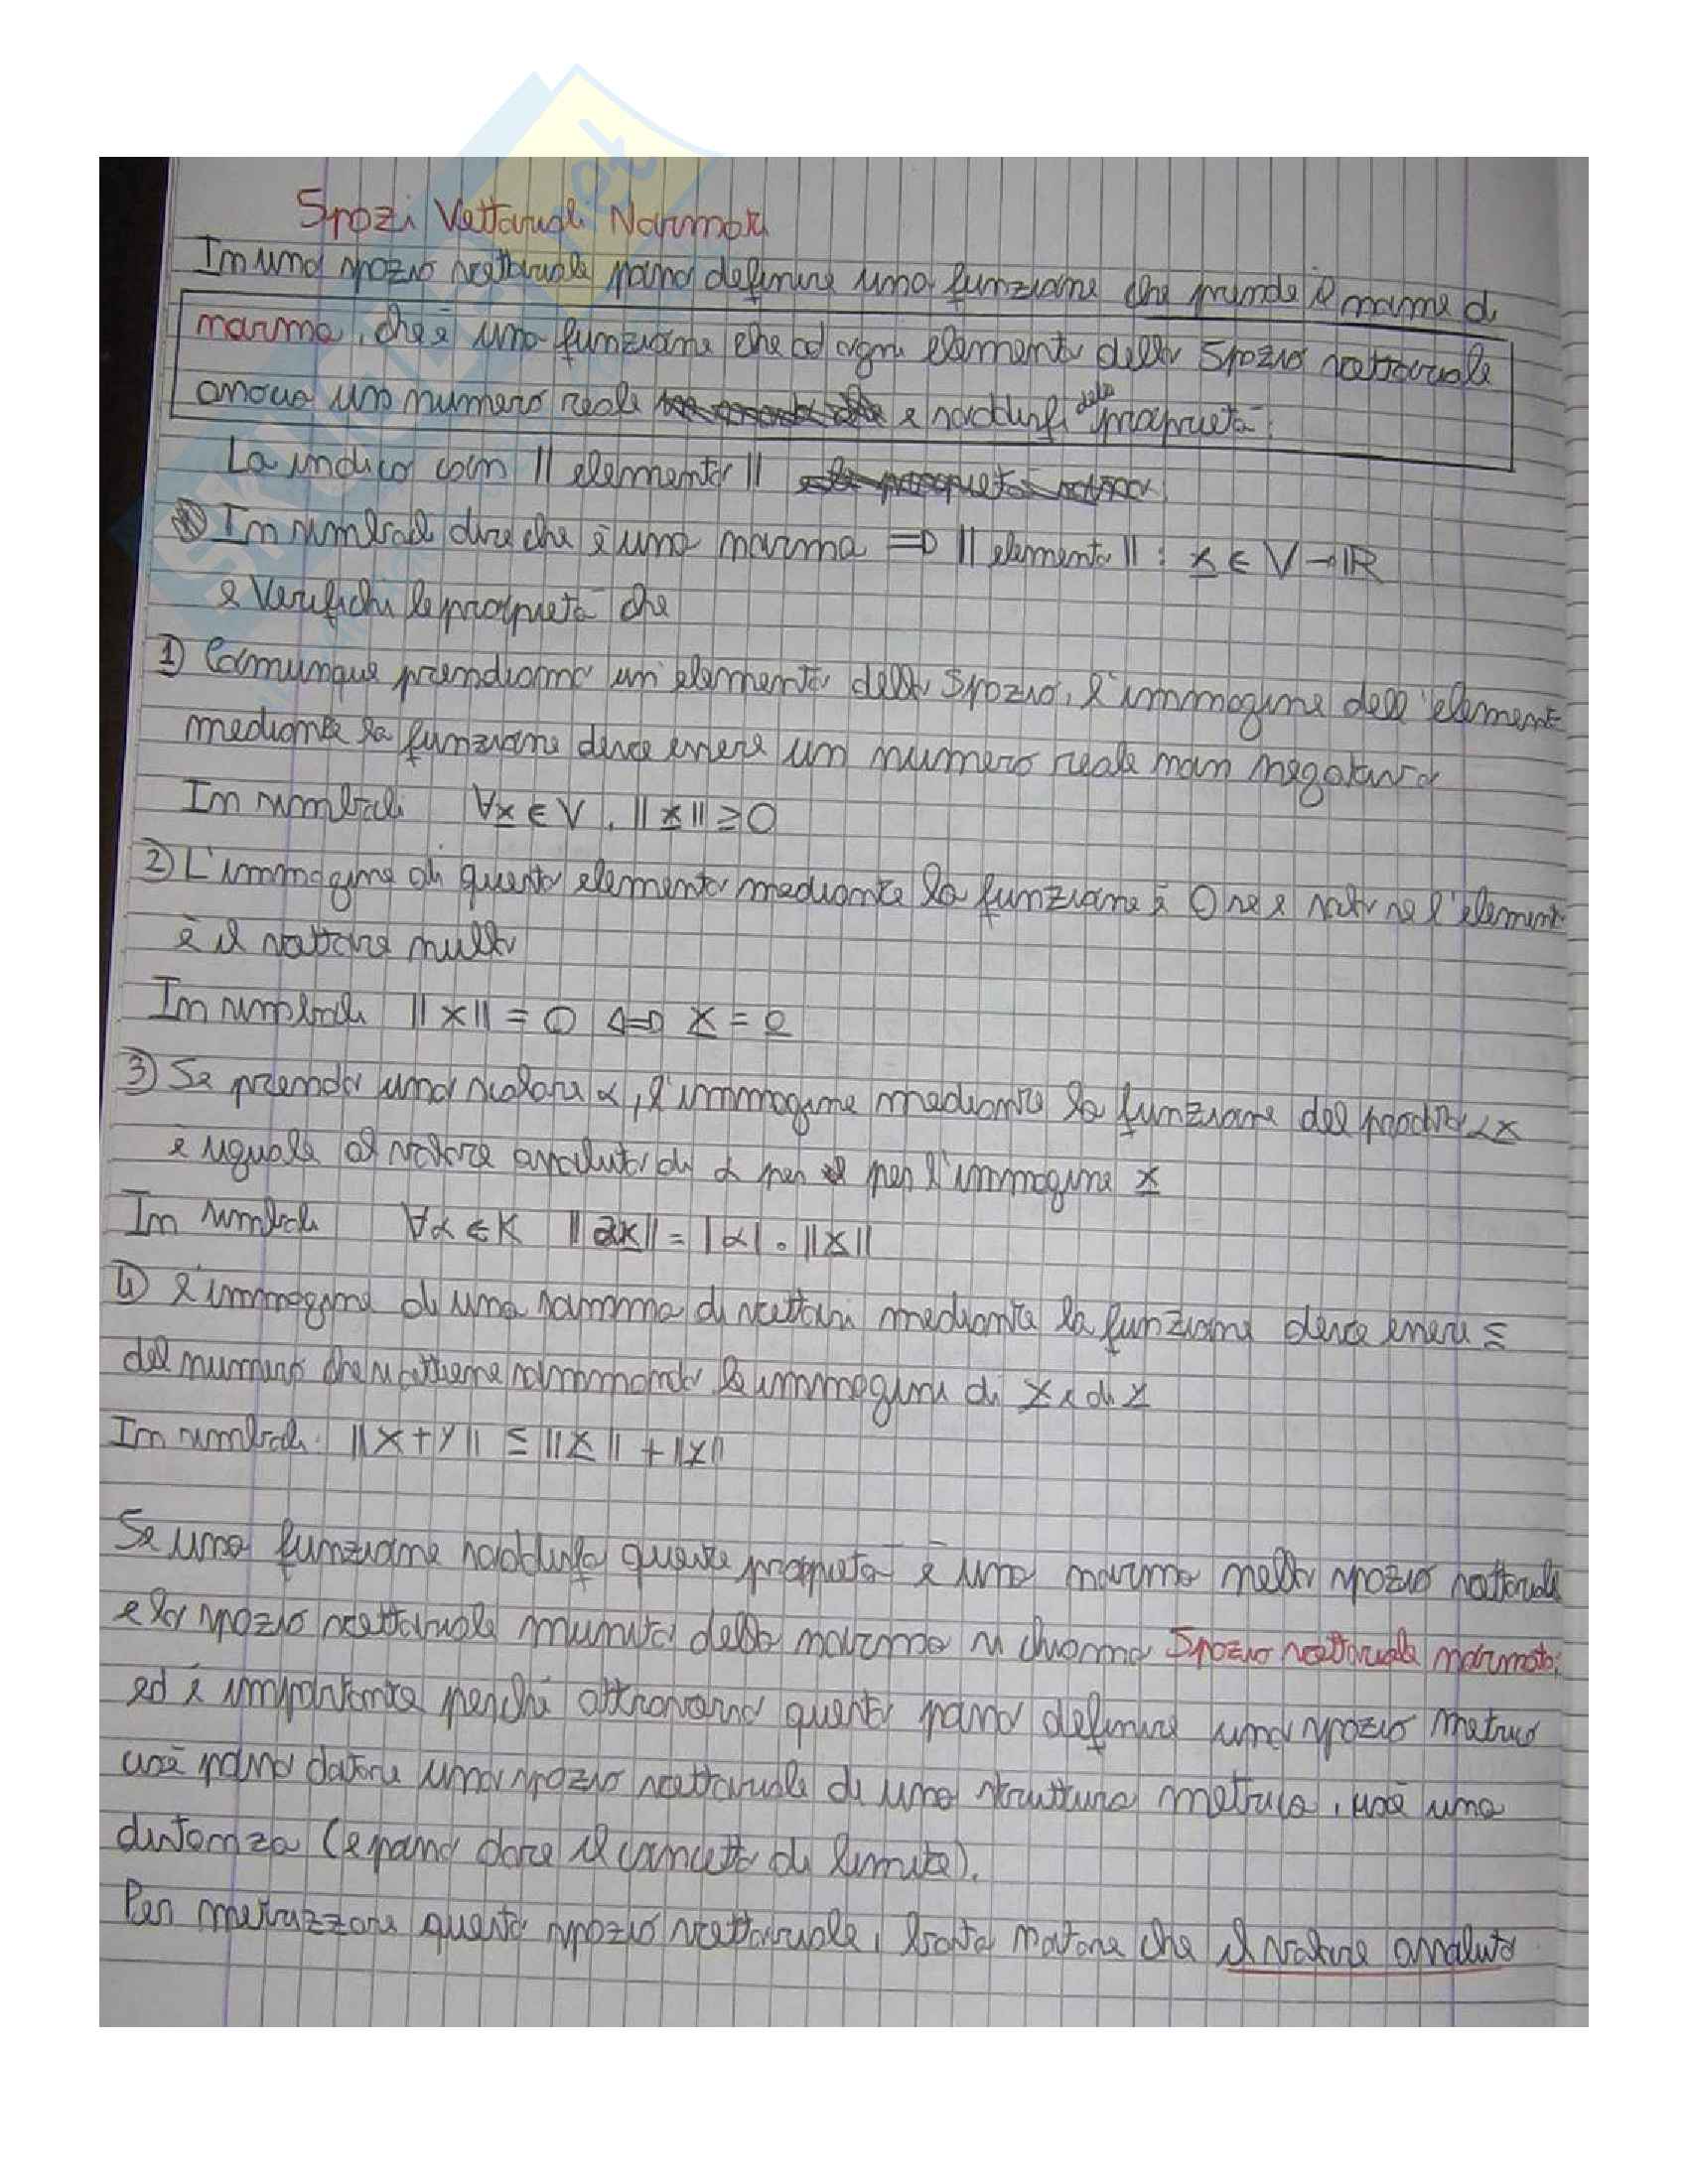 Spazi Vettoriali Normati
In uno spazio vettoriale posso definire una funzione che prende il nome di
norma, che è una funzione che ad ogni elemento dello spazio vettoriale
associa un numero reale e soddisfi delle proprietà:
La indico con || elemento ||
In simboli dire che è una norma => || elemento || : x ∈ V → ℝ
e verifichi le proprietà che
1) Comunque prendiamo un elemento dello spazio, l'immagine dell'elemento
mediante la funzione deve essere un numero reale non negativo
In simboli ∀x ∈ V, ||x|| ≥ 0
2) L'immagine di questo elemento mediante la funzione è 0 se e solo se l'elemento
è il vettore nullo
In simboli ||x|| = 0 <=> x = 0
3) Se prendo uno scalare α, l'immagine mediante la funzione del prodotto αx
è uguale al valore assoluto di α per per l'immagine x
In simboli ∀α ∈ K ||αx|| = |α| · ||x||
4) L'immagine di una somma di vettori mediante la funzione deve essere ≤
del numero che si ottiene sommando le immagini di x e di y
In simboli ||x+y|| ≤ ||x|| + ||y||
Se una funzione soddisfa queste proprietà è una norma nello spazio vettoriale
e lo spazio vettoriale munito della norma si chiama spazio vettoriale normato,
ed è importante perché attraverso questo posso definire uno spazio metrico
cioè posso dotare uno spazio vettoriale di una struttura metrica, cioè una
distanza (e posso dare il concetto di limite).
Per metrizzare questo spazio vettoriale, basta notare che il valore assoluto